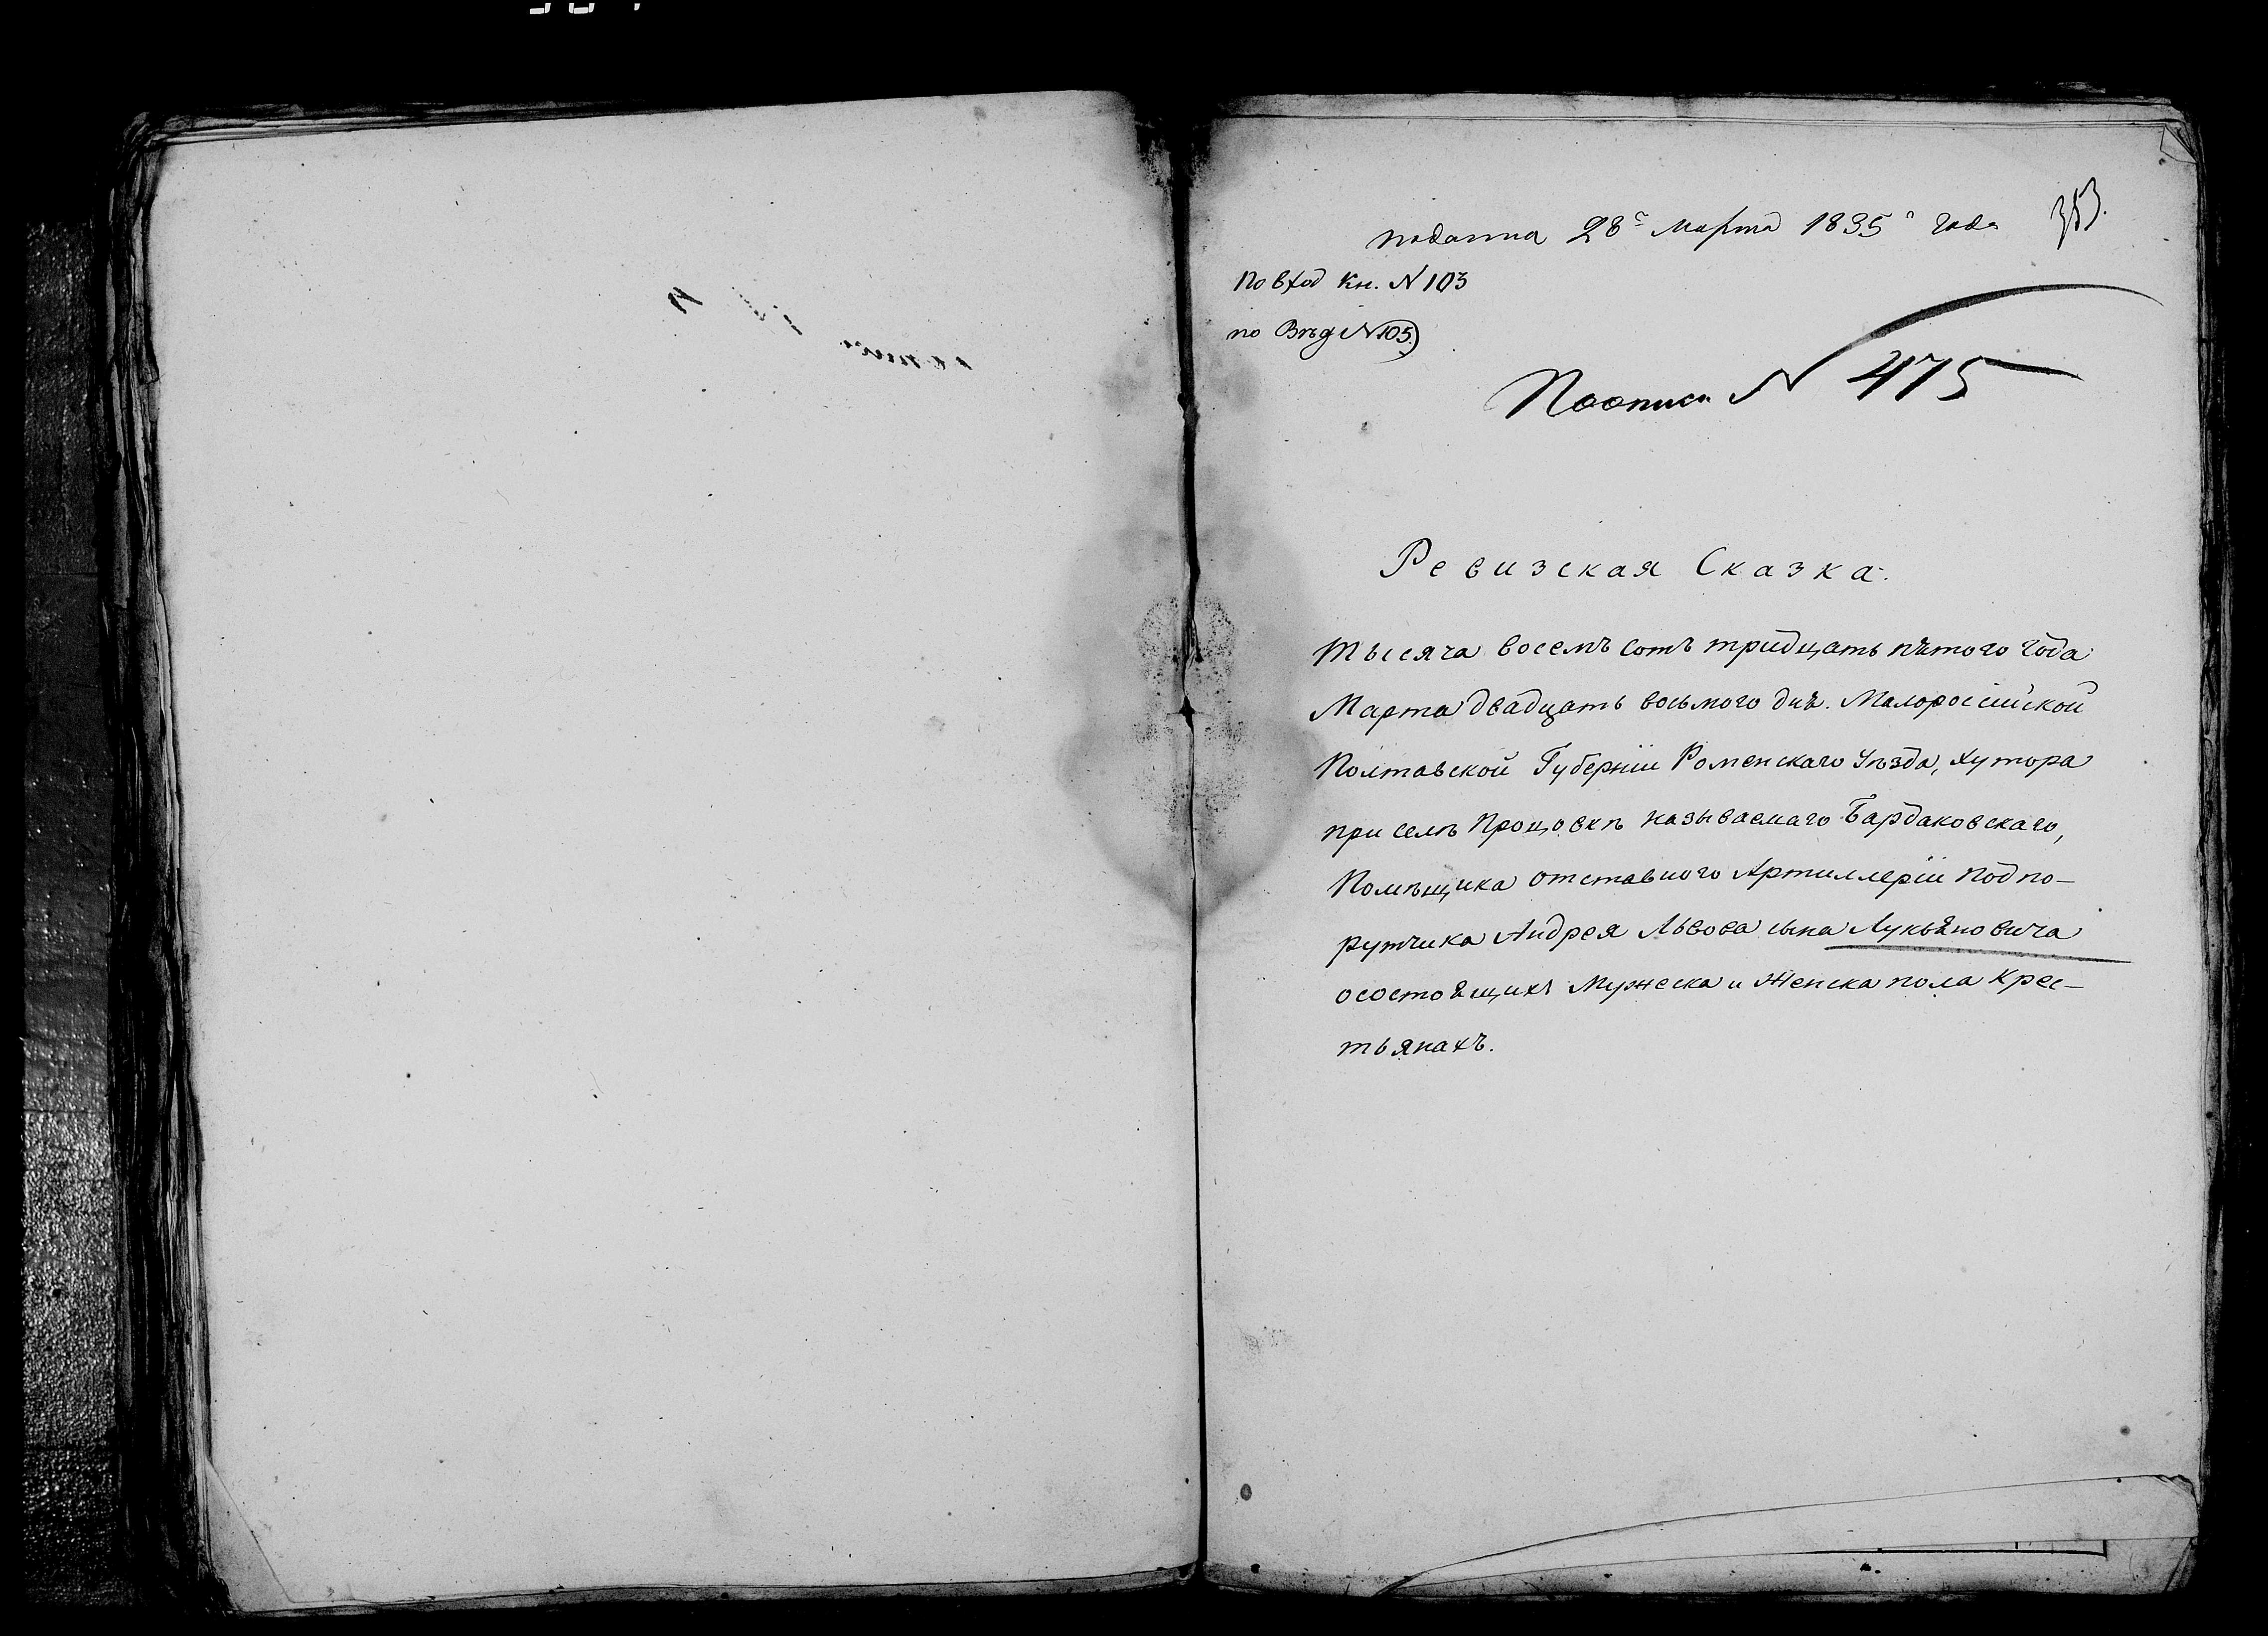 поданна 28го марта 1835го года
353.
По вход Кн. N 103
по Вѣд N 105.
По описи N 475
Ревизская Сказка.
Тысяча восемъ сотъ тридцать пятого года
Марта двадцать восьмого дня. Малоросійской
Полтавской Губерніи Роменскаго Уѣзда, хутора
при селѣ Процовкѣ называемаго Бардаковскаго,
Помѣщика отставного Артиллеріи Подпо-
рутчика Андрея Львова сына Лукьяновича
осостоящихъ Мужеска и Женска пола крес-
тьянахъ.